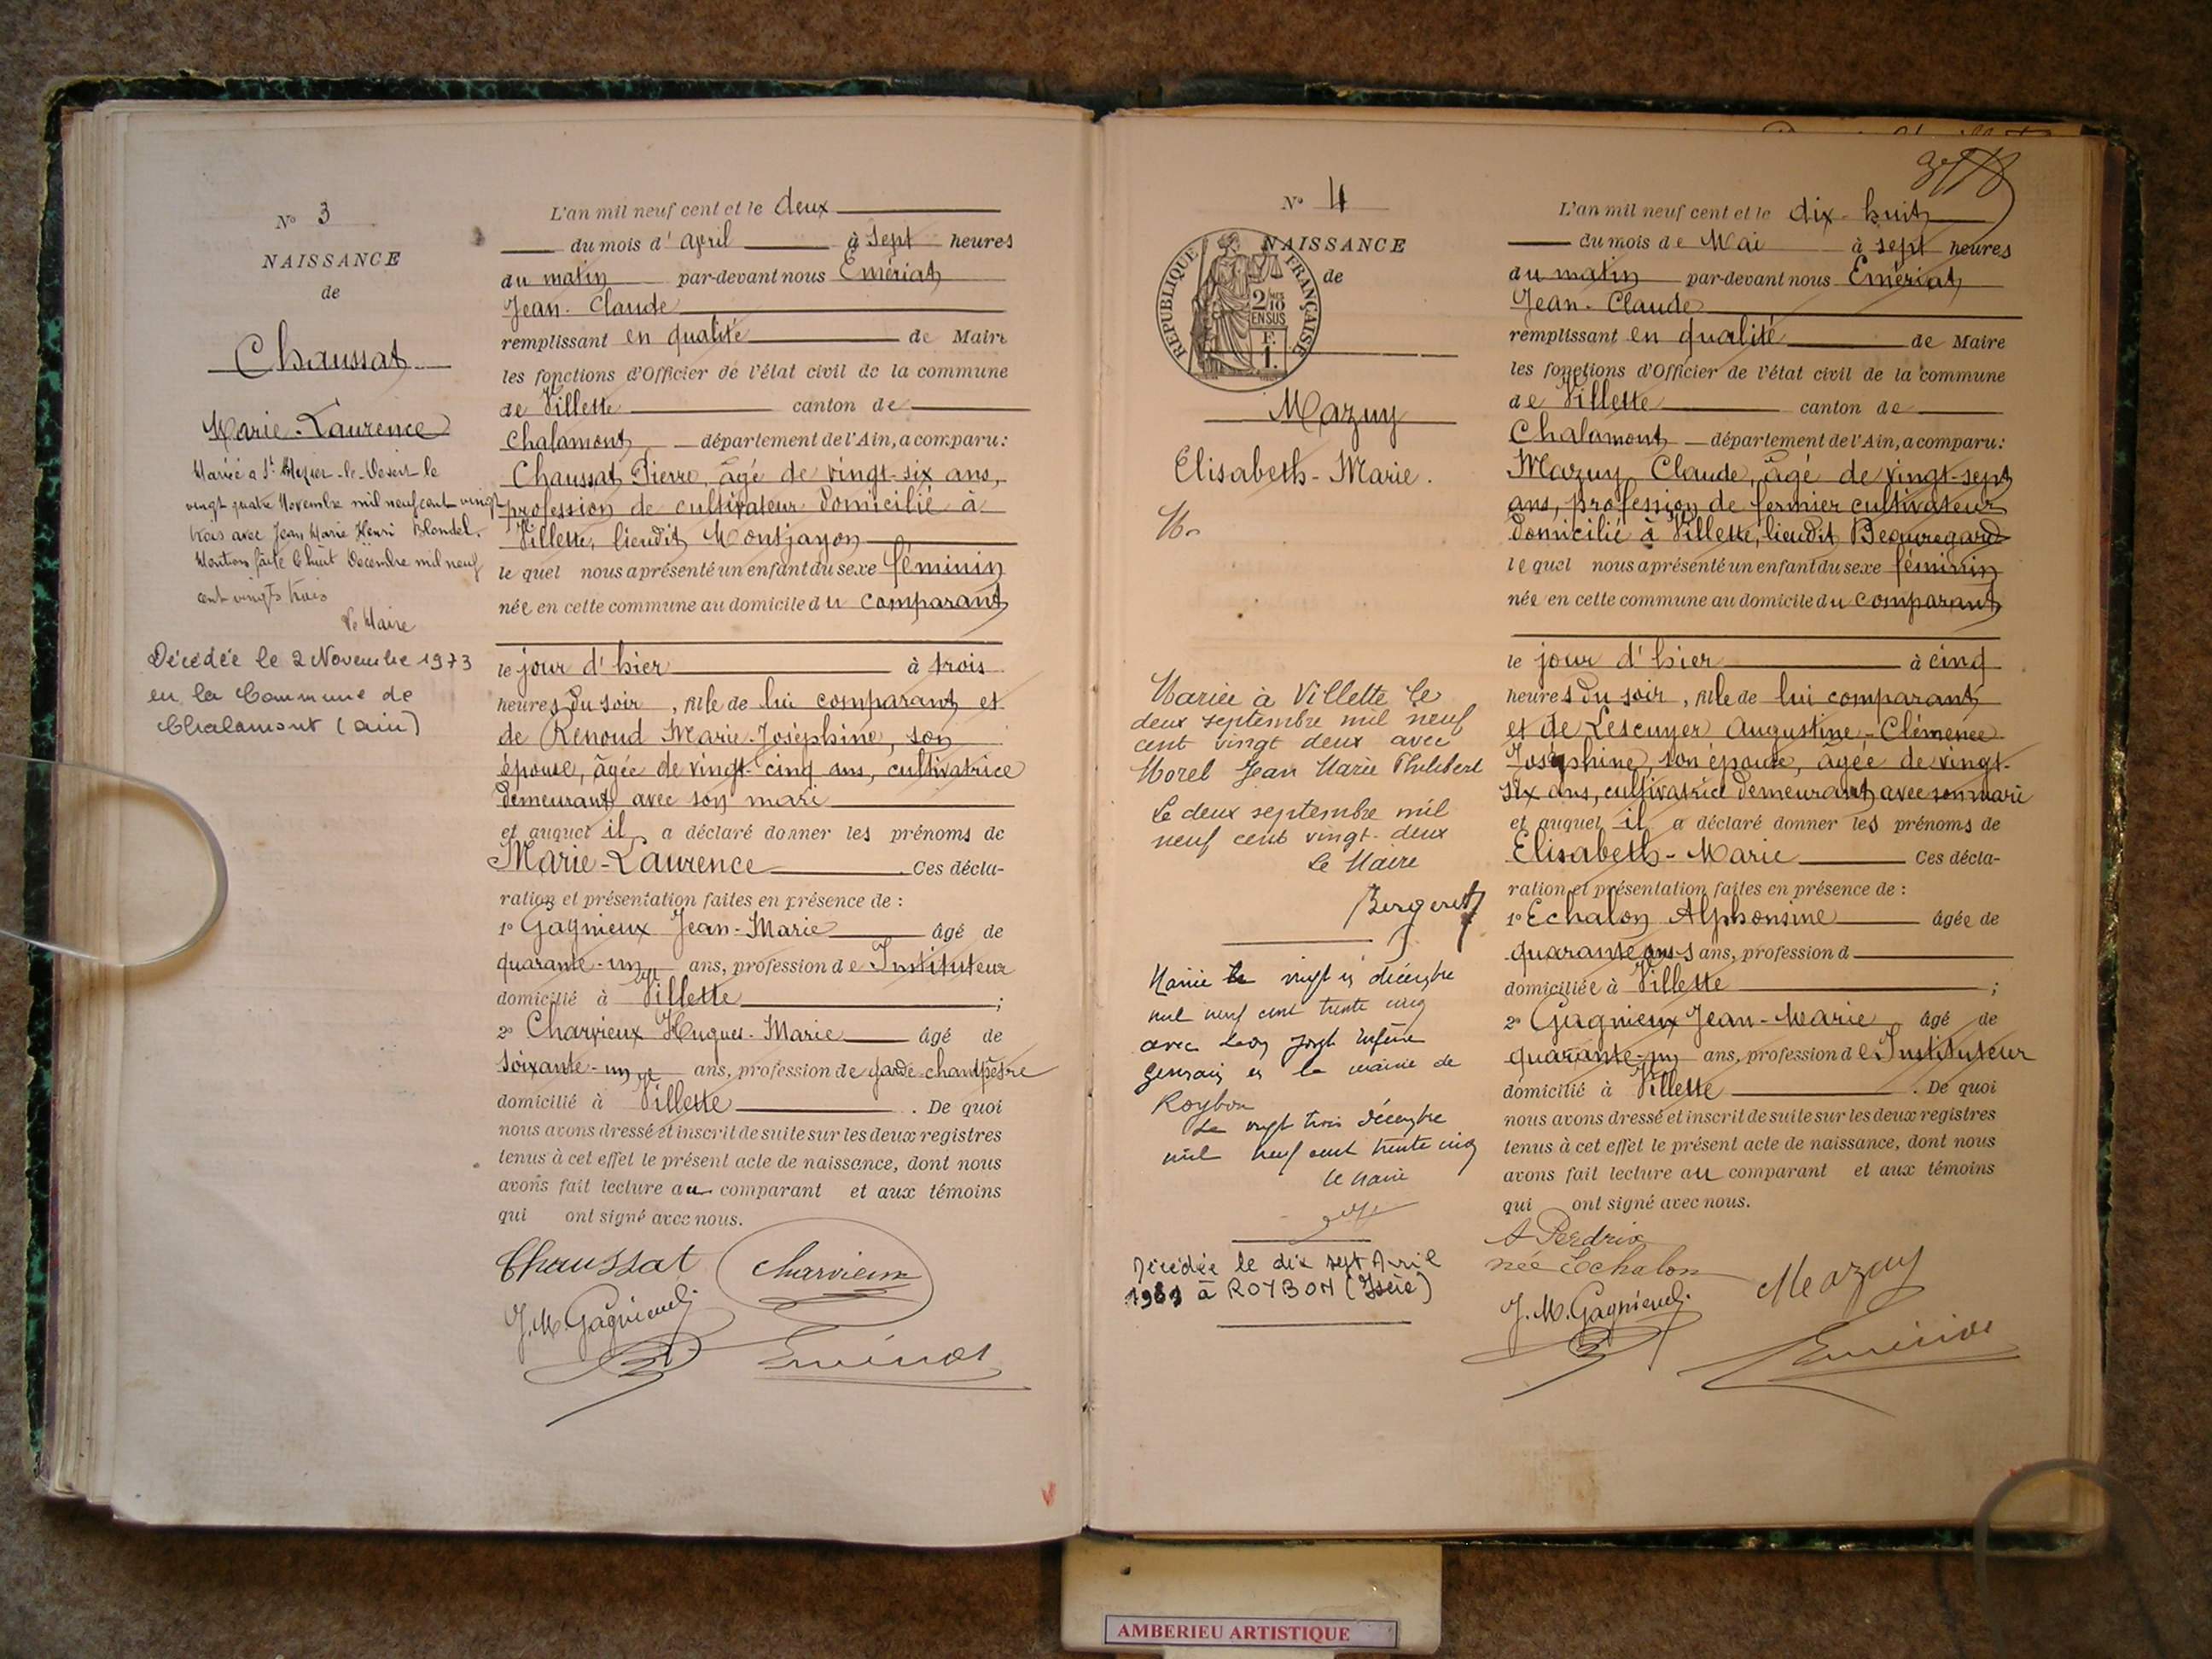 N° 3
NAISSANCE
de
Chaussat
Marie-Laurence
Mariée à St Nizier-le-Désert le
vingt quatre Novembre mil neuf cent vingt
trois avec Jean Marie Henri Blondel.
Mention faite le huit Décembre mil neuf
cent vingt trois
Le Maire
Décédée le 2 Novembre 1973
en la Commune de
Chalamont (ain)
L'an mil neuf cent et le deux
du mois d'avril à sept heures
du matin par-devant nous Emériat
Jean-Claude
remplissant en qualité de Maire
les fonctions d'Officier de l'état civil de la commune
de Villette canton de
Chalamont département de l'Ain, a comparu:
Chaussat Pierre, âgé de vingt-six ans,
profession de cultivateur domicilié à
Villette, lieudit Montjayon
le quel nous a présenté un enfant du sexe féminin
née en cette commune au domicile du comparant
le jour d'hier à trois
heures du soir, fille de lui comparant et
de Renoud Marie-Joséphine, son
épouse, âgée de vingt-cinq ans, cultivatrice
demeurant avec son mari
et auquel il a déclaré donner les prénoms de
Marie-Laurence Ces décla-
ration et présentation faites en présence de :
1° Gagnieux Jean-Marie âgé de
quarante-un ans, profession de Instituteur
domicilié à Villette ;
2° Charvieux Hugues-Marie âgé de
soixante-un ans, profession de garde-champêtre
domicilié à Villette . De quoi
nous avons dressé et inscrit de suite sur les deux registres
tenus à cet effet le présent acte de naissance, dont nous
avons fait lecture au comparant et aux témoins
qui ont signé avec nous.
Chaussat Charvieux
J.M. Gagnieux
Emériat
N° 4
NAISSANCE
de
REPUBLIQUE FRANÇAISE
2/10
EN SUS
F.
1.
Mazuy
Elisabeth-Marie.
Mariée à Villette le
deux septembre mil neuf
cent vingt deux avec
Morel Jean Marie Philibert
Le deux septembre mil
neuf cent vingt-deux
Le Maire
Bergeret
Mariée le vingt décembre
mil neuf cent trente cinq
avec Léon Joseph
la mairie de
Roybon
Le vingt trois décembre
mil neuf cent trente cinq
Le Maire
Décédée le dix sept Avril
à ROYBON (Isère)
L'an mil neuf cent et le dix-huit
du mois de Mai à sept heures
du matin par-devant nous Emériat
Jean-Claude
remplissant en qualité de Maire
les fonctions d'Officier de l'état civil de la commune
de Villette canton de
Chalamont département de l'Ain, a comparu:
Mazuy Claude, âgé de vingt-sept
ans, profession de fermier cultivateur
domicilié à Villette, lieudit Beauregard
le quel nous a présenté un enfant du sexe féminin
née en cette commune au domicile du comparant
le jour d'hier à cinq
heures du soir, fille de lui comparant
et de Lescuyer Augustine-Clémence
Joséphine, son épouse, âgée de vingt-
six ans, cultivatrice demeurant avec son mari
et auquel il a déclaré donner les prénoms de
Elisabeth-Marie Ces décla-
ration et présentation faites en présence de :
1° Echalon Alphonsine âgée de
quarante ans ans, profession d
domiciliée à Villette ;
2° Gagnieux Jean-Marie âgé de
quarante-un ans, profession de Instituteur
domicilié à Villette . De quoi
nous avons dressé et inscrit de suite sur les deux registres
tenus à cet effet le présent acte de naissance, dont nous
avons fait lecture au comparant et aux témoins
qui ont signé avec nous.
A Perdrix
née Echalon
Mazuy
J. M. Gagnieux
Emériat
AMBERIEU ARTISTIQUE